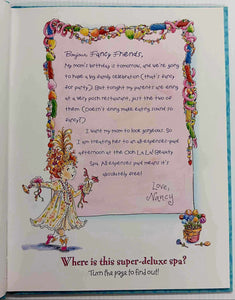 Bonjour Fancy Friends,
My mom's birthday is tomorrow, and we're going
to have a big family celebration (that's fancy
for party.) But tonight my parents are going
at a very posh restaurant, just the two of
them. (Doesn't dining make eating sound so
fancy?)
I want my mom to look gorgeous. So
I am treating her to an all-expenses-paid
afternoon at the Ooh La La Beauty
Spa. All-expenses-paid means it's
absolutely free!
Love,
Nancy
Where is this super-deluxe spa?
Turn the page to find out!